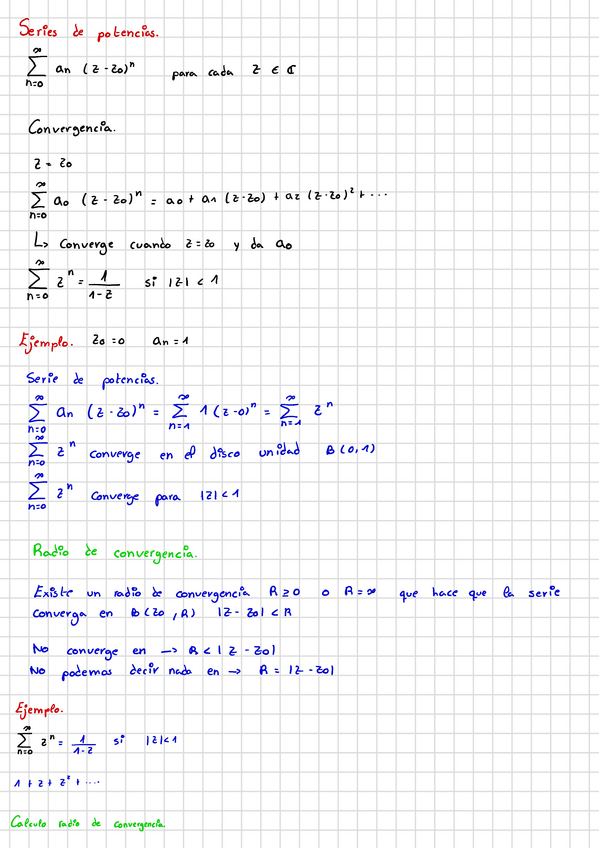 Series de potencias.
∞
∑ an (z - z0)^n para cada z ∈ ℂ
n=0
Convergencia.
z = z0
∞
∑ a0 (z - z0)^n = a0 + a1 (z-z0) + a2 (z-z0)² + ...
n=0
↳ Converge cuando z = z0 y da a0
∞
∑ z^n = 1/(1-z) si |z| < 1
n=0
Ejemplo. z0 = 0 an = 1
Serie de potencias.
∞ ∞ ∞
∑ an (z - z0)^n = ∑ 1 (z - 0)^n = ∑ z^n
n=0 n=1 n=1
∞
∑ z^n converge en el disco unidad B(0,1)
n=0
∞
∑ z^n converge para |z| < 1
n=0
Radio de convergencia.
Existe un radio de convergencia R ≥ 0 o R = ∞ que hace que la serie
converga en B(z0, R) |z - z0| < R
No converge en → R < |z - z0|
No podemos decir nada en → R = |z - z0|
Ejemplo.
∞
∑ z^n = 1/(1-z) si |z| < 1
n=0
1 + z + z² + ....
Calculo radio de convergencia.